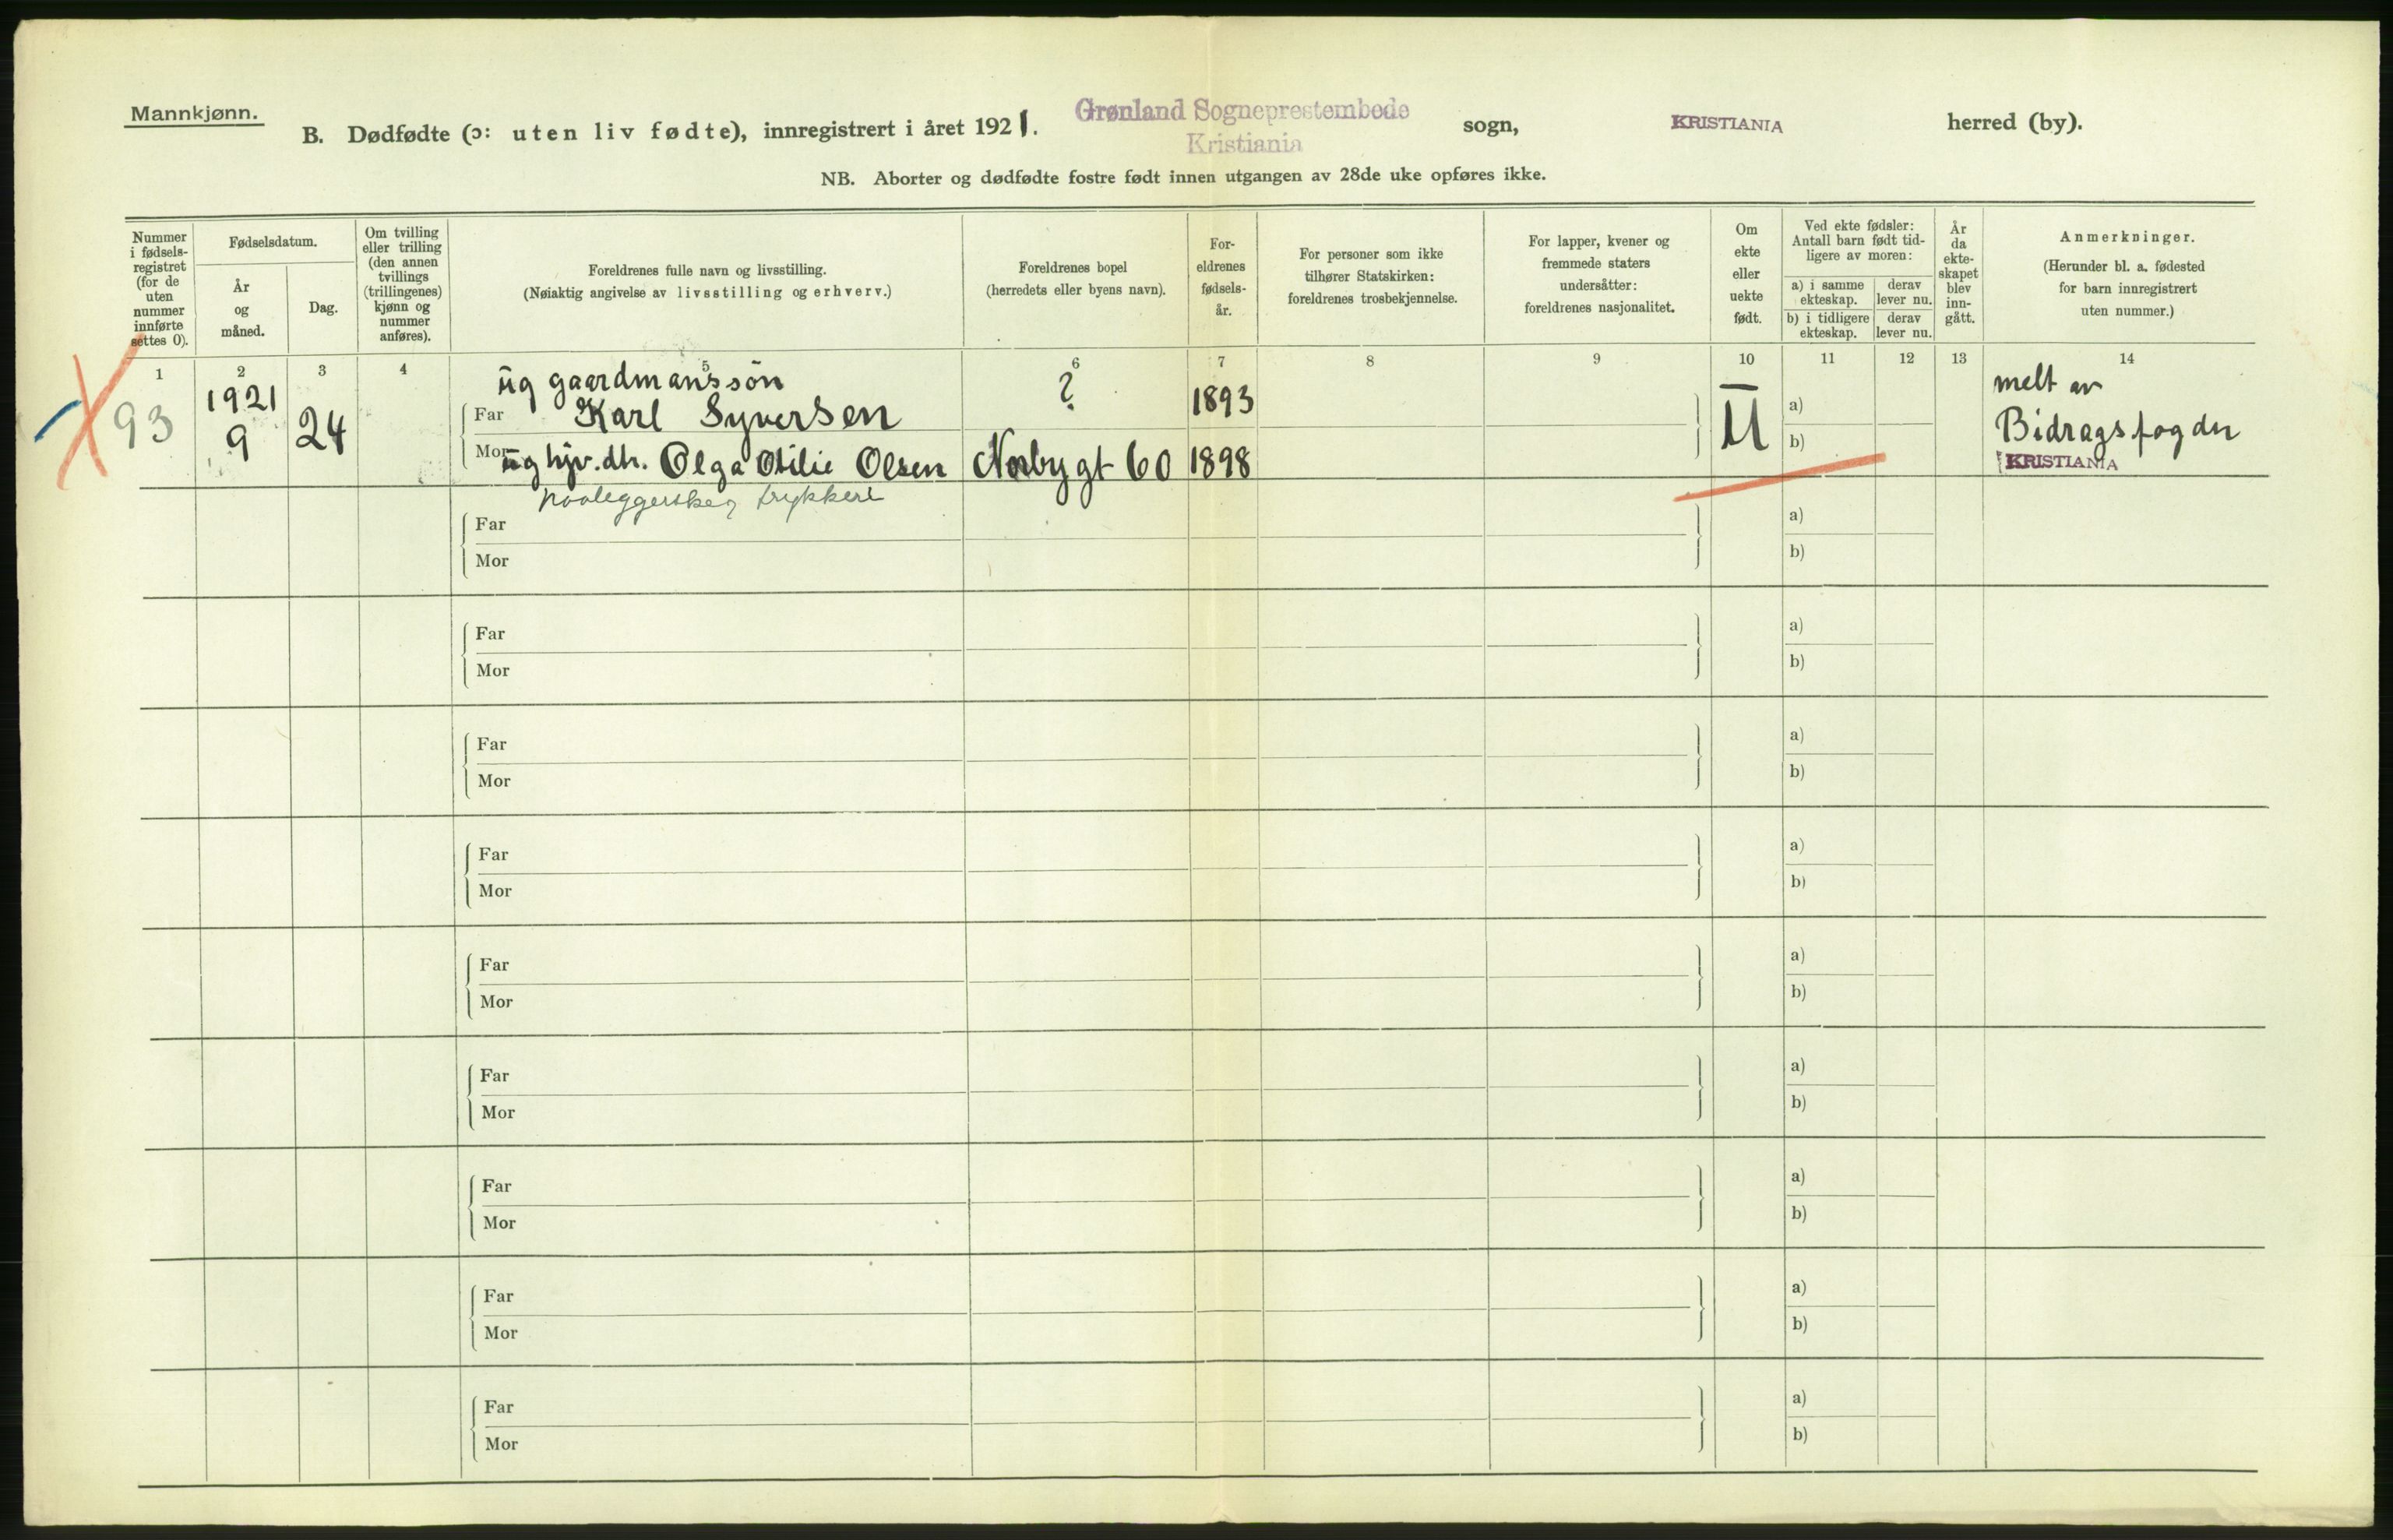 Mannkjønn.
B. Dødfødte (ɔ: uten liv fødte), innregistrert i året 1921. Grønland Sogneprestembede sogn, KRISTIANIA herred (by).
Kristiania
NB. Aborter og dødfødte fostre født innen utgangen av 28de uke opføres ikke.
Nummer i fødsels-registret (for de uten nummer innførte settes 0).
Fødselsdatum.
År og måned.
Dag.
Om tvilling eller trilling (den annen tvillings (trillingenes) kjønn og nummer anføres).
Foreldrenes fulle navn og livsstilling.
(Nøiaktig angivelse av livsstilling og erhverv.)
Foreldrenes bopel
(herredets eller byens navn).
For-eldrenes fødsels-år.
For personer som ikke
tilhører Statskirken:
foreldrenes trosbekjennelse.
For lapper, kvener og
fremmede staters
undersåtter:
foreldrenes nasjonalitet.
Om ekte eller uekte født.
Ved ekte fødsler:
Antall barn født tid-
ligere av moren:
a) i samme ekteskap.
derav lever nu.
b) i tidligere ekteskap.
derav lever nu.
År da ekte-skapet blev inn-gått.
Anmerkninger.
(Herunder bl. a. fødested
for barn innregistrert
uten nummer.)
1 2 3 4 5 6 7 8 9 10 11 12 13 14
ug gaardmanssøn ? melt av
93 1921 9 24 Far Karl Syversen 1893 U a) Bidragsfogden
Mor ug hjv.dtr. Olga Otilie Olsen Norbygt 60 1898 b) KRISTIANIA
trykkeri
Far a)
Mor b)
Far a)
Mor b)
Far a)
Mor b)
Far a)
Mor b)
Far a)
Mor b)
Far a)
Mor b)
Far a)
Mor b)
Far a)
Mor b)
Far a)
Mor b)